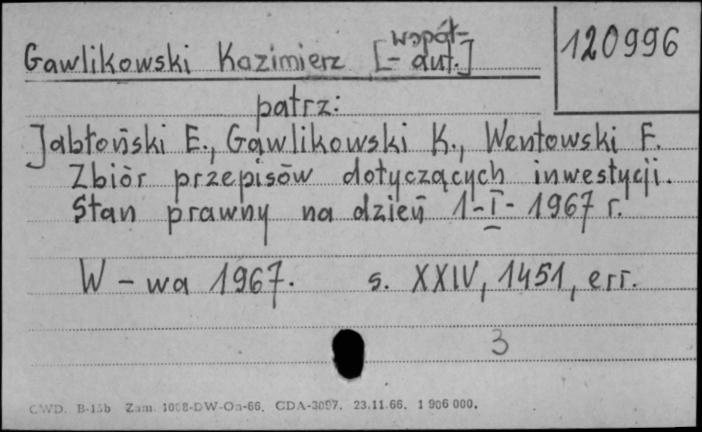 Gawlikowski Kazimierz [współ-
- aut.]
120996
patrz:
Jabłoński E., Gawlikowski K., Wentowski F.
Zbiór przepisów dotyczących inwestycji.
Stan prawny na dzień 1-I-1967 r.
W-wa 1967. s. XXIV, 1451, err.
3
CWD. B-15b Zam. 1008-DW-On-66. CDA-3097. 23.11.66. 1 906 000.